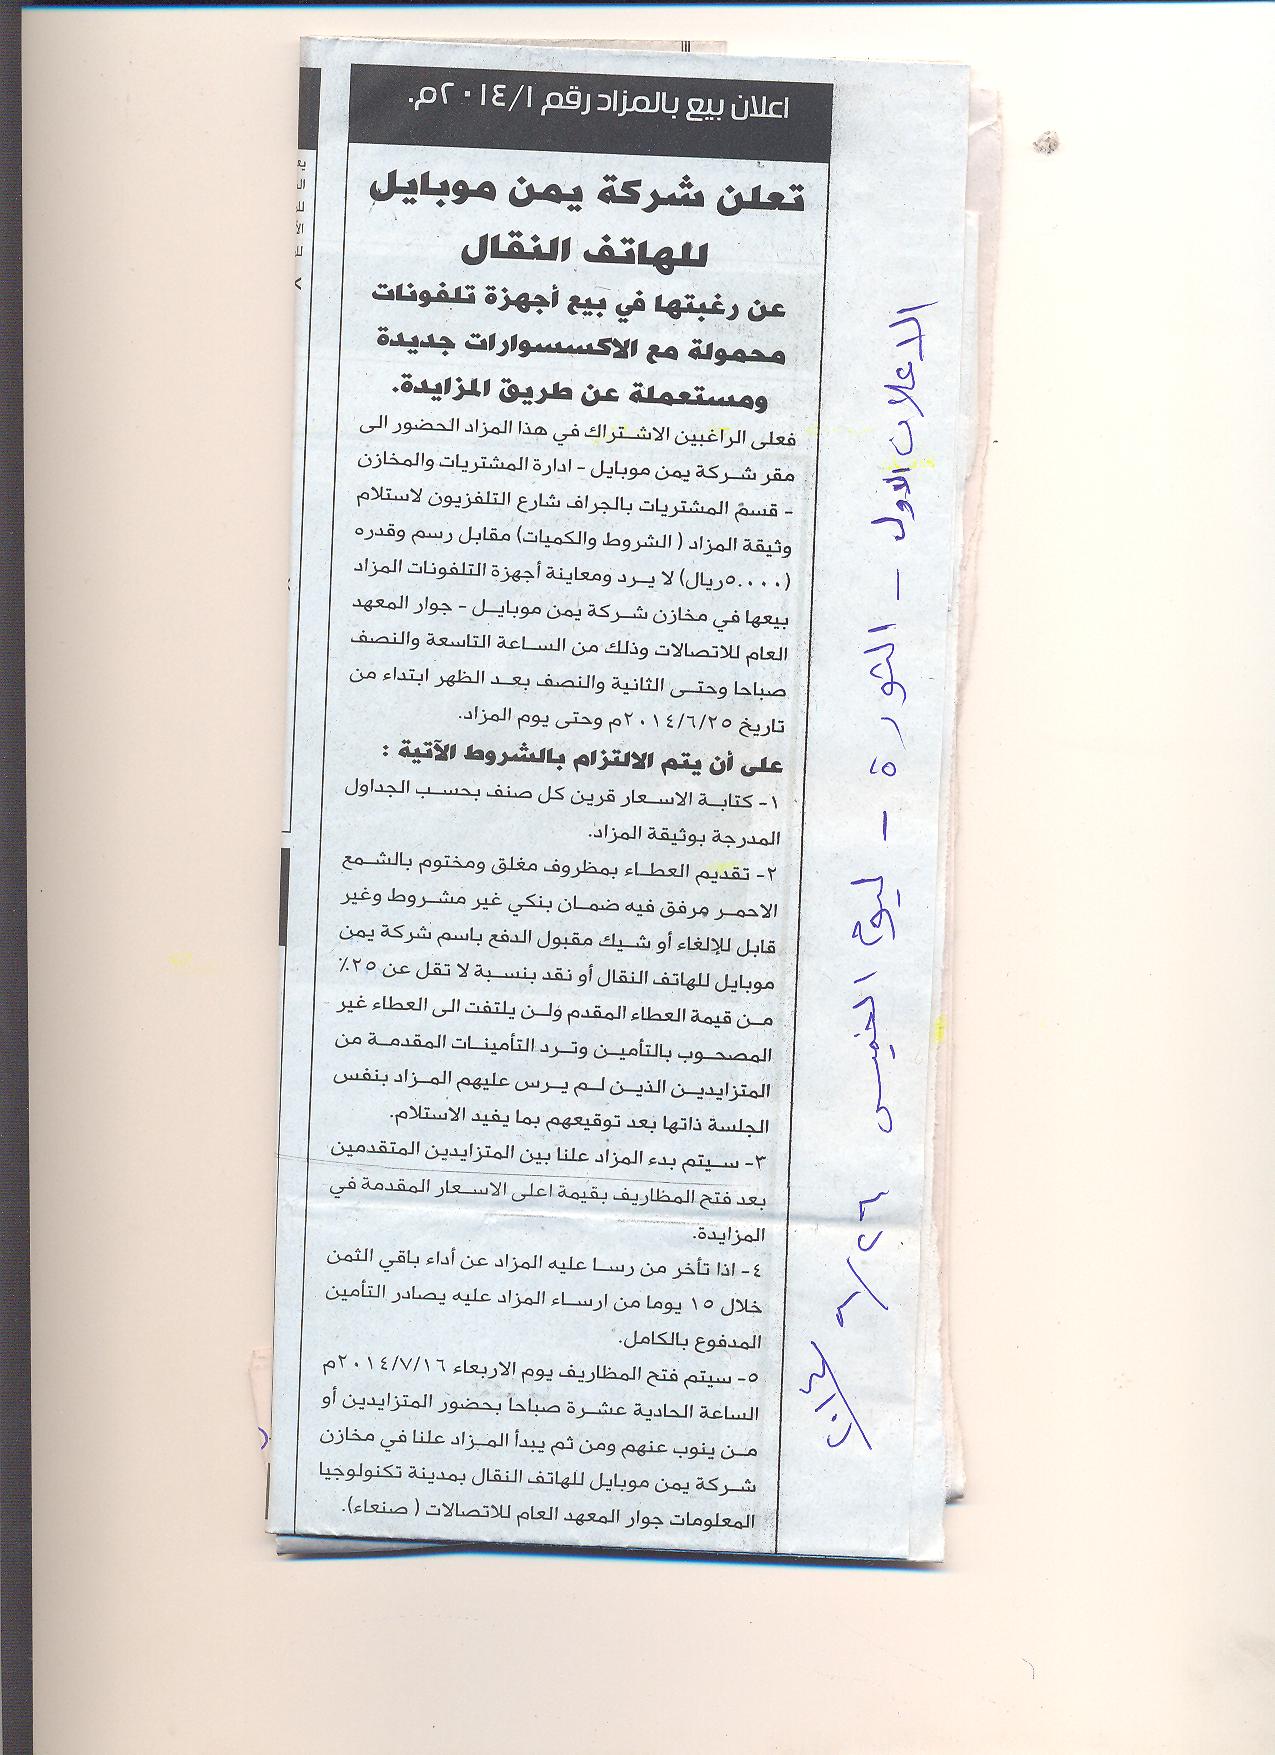 اعلان بيع بالمزاد رقم ٢٠١٤/١م.
تعلن شركة يمن موبايل
للهاتف النقال
عن رغبتها في بيع أجهزة تلفونات
محمولة مع الاكسسوارات جديدة
ومستعملة عن طريق المزايدة.
فعلى الراغبين الاشتراك في هذا المزاد الحضور الى
مقر شركة يمن موبايل - ادارة المشتريات والمخازن
- قسم المشتريات بالجراف شارع التلفزيون لاستلام
وثيقة المزاد ( الشروط والكميات) مقابل رسم وقدره
(٥.٠٠٠ريال) لا يرد ومعاينة أجهزة التلفونات المزاد
بيعها في مخازن شركة يمن موبايل - جوار المعهد
العام للاتصالات وذلك من الساعة التاسعة والنصف
صباحا وحتى الثانية والنصف بعد الظهر ابتداء من
تاريخ ٢٠١٤/٦/٢٥م وحتى يوم المزاد.
على أن يتم الالتزام بالشروط الآتية :
١- كتابة الاسعار قرين كل صنف بحسب الجداول
المدرجة بوثيقة المزاد.
٢- تقديم العطاء بمظروف مغلق ومختوم بالشمع
الاحمر مرفق فيه ضمان بنكي غير مشروط وغير
قابل للإلغاء أو شيك مقبول الدفع باسم شركة يمن
موبايل للهاتف النقال أو نقد بنسبة لا تقل عن ٢٥٪
من قيمة العطاء المقدم ولن يلتفت الى العطاء غير
المصحوب بالتأمين وترد التأمينات المقدمة من
المتزايدين الذين لم يرس عليهم المزاد بنفس
الجلسة ذاتها بعد توقيعهم بما يفيد الاستلام.
٣- سيتم بدء المزاد علنا بين المتزايدين المتقدمين
بعد فتح المظاريف بقيمة اعلى الاسعار المقدمة في
المزايدة.
٤- اذا تأخر من رسا عليه المزاد عن أداء باقي الثمن
خلال ١٥ يوما من ارساء المزاد عليه يصادر التأمين
المدفوع بالكامل.
٥- سيتم فتح المظاريف يوم الاربعاء ٢٠١٤/٧/١٦م
الساعة الحادية عشرة صباحا بحضور المتزايدين أو
من ينوب عنهم ومن ثم يبدأ المزاد علنا في مخازن
شركة يمن موبايل للهاتف النقال بمدينة تكنولوجيا
المعلومات جوار المعهد العام للاتصالات ( صنعاء).
الاعلان الاول - الثورة - ليوم الخميس ٢٦/٦/٢٠١٤